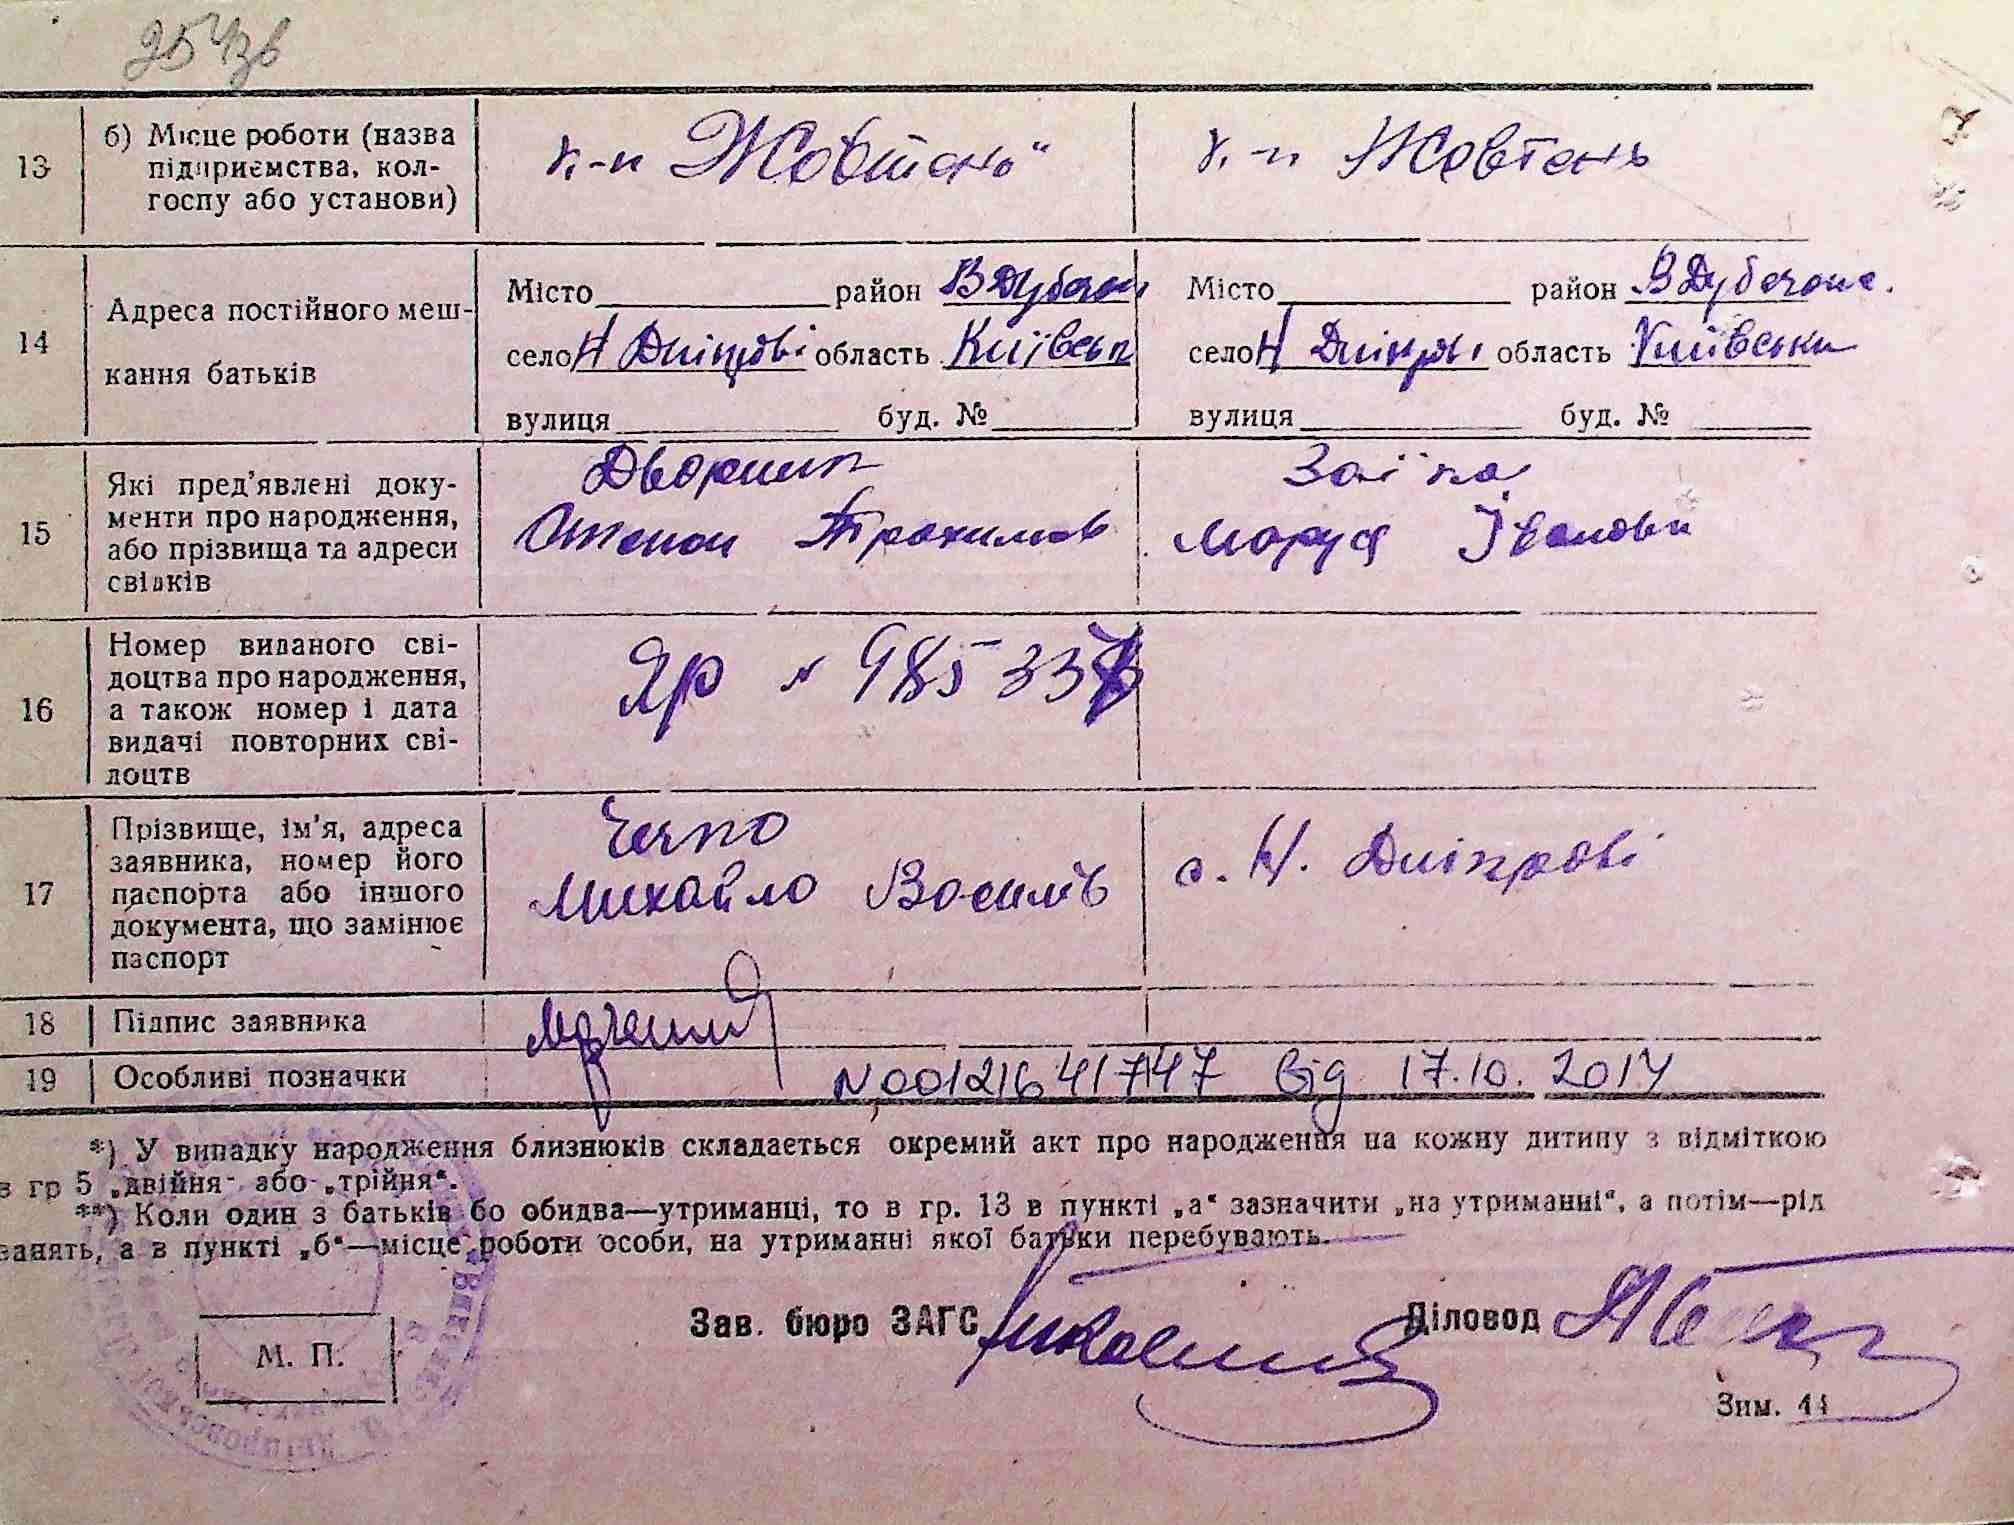 13
б) Місце роботи (назва
підприємства, кол-
госпу або установи)
к-п Жовтень"
к-п Жовтень
14
Адреса постійного меш-
кання батьків
Місто район В Дубечан
село Н Дніпрові область Київськ
вулиця буд. №
Місто район В Дубечанс.
село Н Дніпрові область Київськи
вулиця буд. №
15
Які пред'явлені доку-
менти про народження,
або прізвища та адреси
свідків
Дворник
Степан Трохимов
Заїка
Маруся Івановн
16
Номер виданого сві-
доцтва про народження,
а також номер і дата
видачі повторних сві-
доцтв
ЯР № 985337
17
Прізвище, ім'я, адреса
заявника, номер його
паспорта або іншого
документа, що замінює
паспорт
Михайло Василів
с. Н. Дніпрові
18
Підпис заявника
19
Особливі позначки
N00121641747 від 17.10.2014
*) У випадку народження близнюків складається окремий акт про народження на кожну дитину з відміткою
в гр 5 „двійня" або „трійня".
**) Коли один з батьків бо обидва—утриманці, то в гр. 13 в пункті „а" зазначити „на утриманні", а потім—рід
занять, а в пункті „б"—місце роботи особи, на утриманні якої батьки перебувають.
Зав. бюро ЗАГС
Діловод
М. П.
Зим. 44